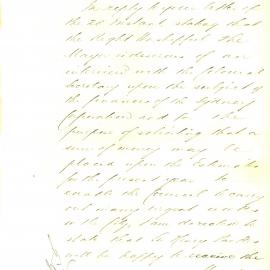 In reply to your letter of
the 28 Instant stating that
the Right Worshipful the
Mayor is desirous of an
interview with the Colonial
Secretary upon the subject of
the finances of the Sydney
Corporation and for the
purpose of soliciting that a
sum of money may be
placed upon the Estimates
for the present year to
enable the Council to carry
out many urgent works
in the City, I am directed to
state that Sir Henry Parkes
will be happy to receive the